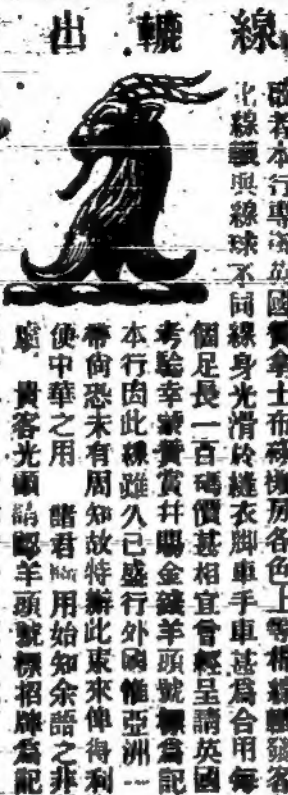 線轆出
啟者本行專 英國 士布 各色上等 線轆 客
此線轆與線球不同線身光滑於縫衣脚車手車甚爲合用每
個足長一百碼價甚相宜曾經呈請英國
考驗幸蒙獎賞并賜金錢羊頭號標爲記
本行因此線雖久已盛行外國惟亞洲一
帶尚恐未有周知故特辦此東來俾得利
便中華之用 諸君 用始知余語之非
虛 貴客光顧請認羊頭號標招牌爲記